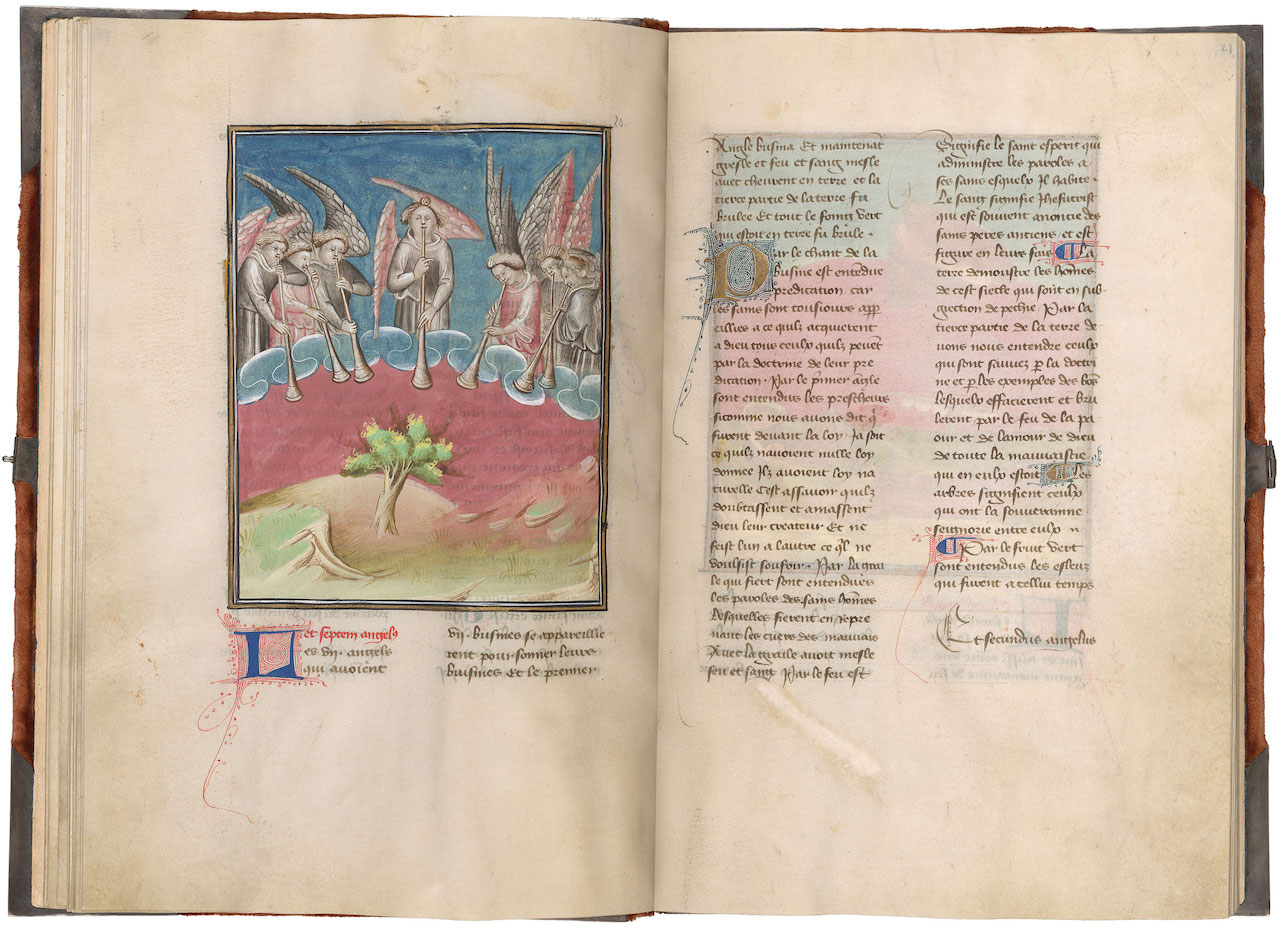 20.
Et septem angelꝰ
Les vij· angels
qui avoient
vij· busines se appareille
rent pour sonner leurs
busines Et le premier
21
Angle busina Et maintenãt
gresle et feu et sang mesle
avec cheurent en terre et la
tierce partie de la terre fu
brulee Et tout le foing vert
qui estoit en terre fu brule ·
Par le chant de la
busine est entendue
predication car
les sains sont tousiours app̃
eillies a ce quilz acquierent
a dieu tous ceulx quilz peuẽt
par la doctrine de leur pre
dication · Par le p̃mier ãgle
sont entendus les prescheurs
sicomme nous avons dit q̃
furent devant la loy · Ja soit
ce quilz navoient nulle loy
donnee Ilz avoient loy na
turelle Cest assavoir quilz
doubtassent et amassent
dieu leur createur Et ne
feist lun a lautre ce q̃l ne
voulsist soufrir · Par la grai
le qui fiert sont entendues
les paroles des sains hõmes
lesquelles fierent en repre
nant les cuers des mauvais
Avec la graile avoit mesle
feu et sang Par le feu est
Signifie le saint esperit qui
administre les paroles a
ses sains esquelx Il habite ·
Le sang signifie Jhesucrist
qui est souvent anoncie des
sains peres anciens et est
figure en leurs fais La
terre demonstre les hõmes
de cest siecle qui sont en sub
gection de pechie · Par la
tierce partie de la terre de
vons nous entendre ceulx
qui sont sauvez p̱ la doctri
ne et p̱ les exemples des bõs
lesquelx effacierent et bru
lerent par le feu de la pa
our et de lamour de dieu
de toute la mauvaistie
qui en eulx estoit Les
arbres signifient ceulx
qui ont la souverainne
seignorie entre eulx
Par le fouit vert
sont entendus les esleuz
qui furent a cellui temps
Et secundus angelus